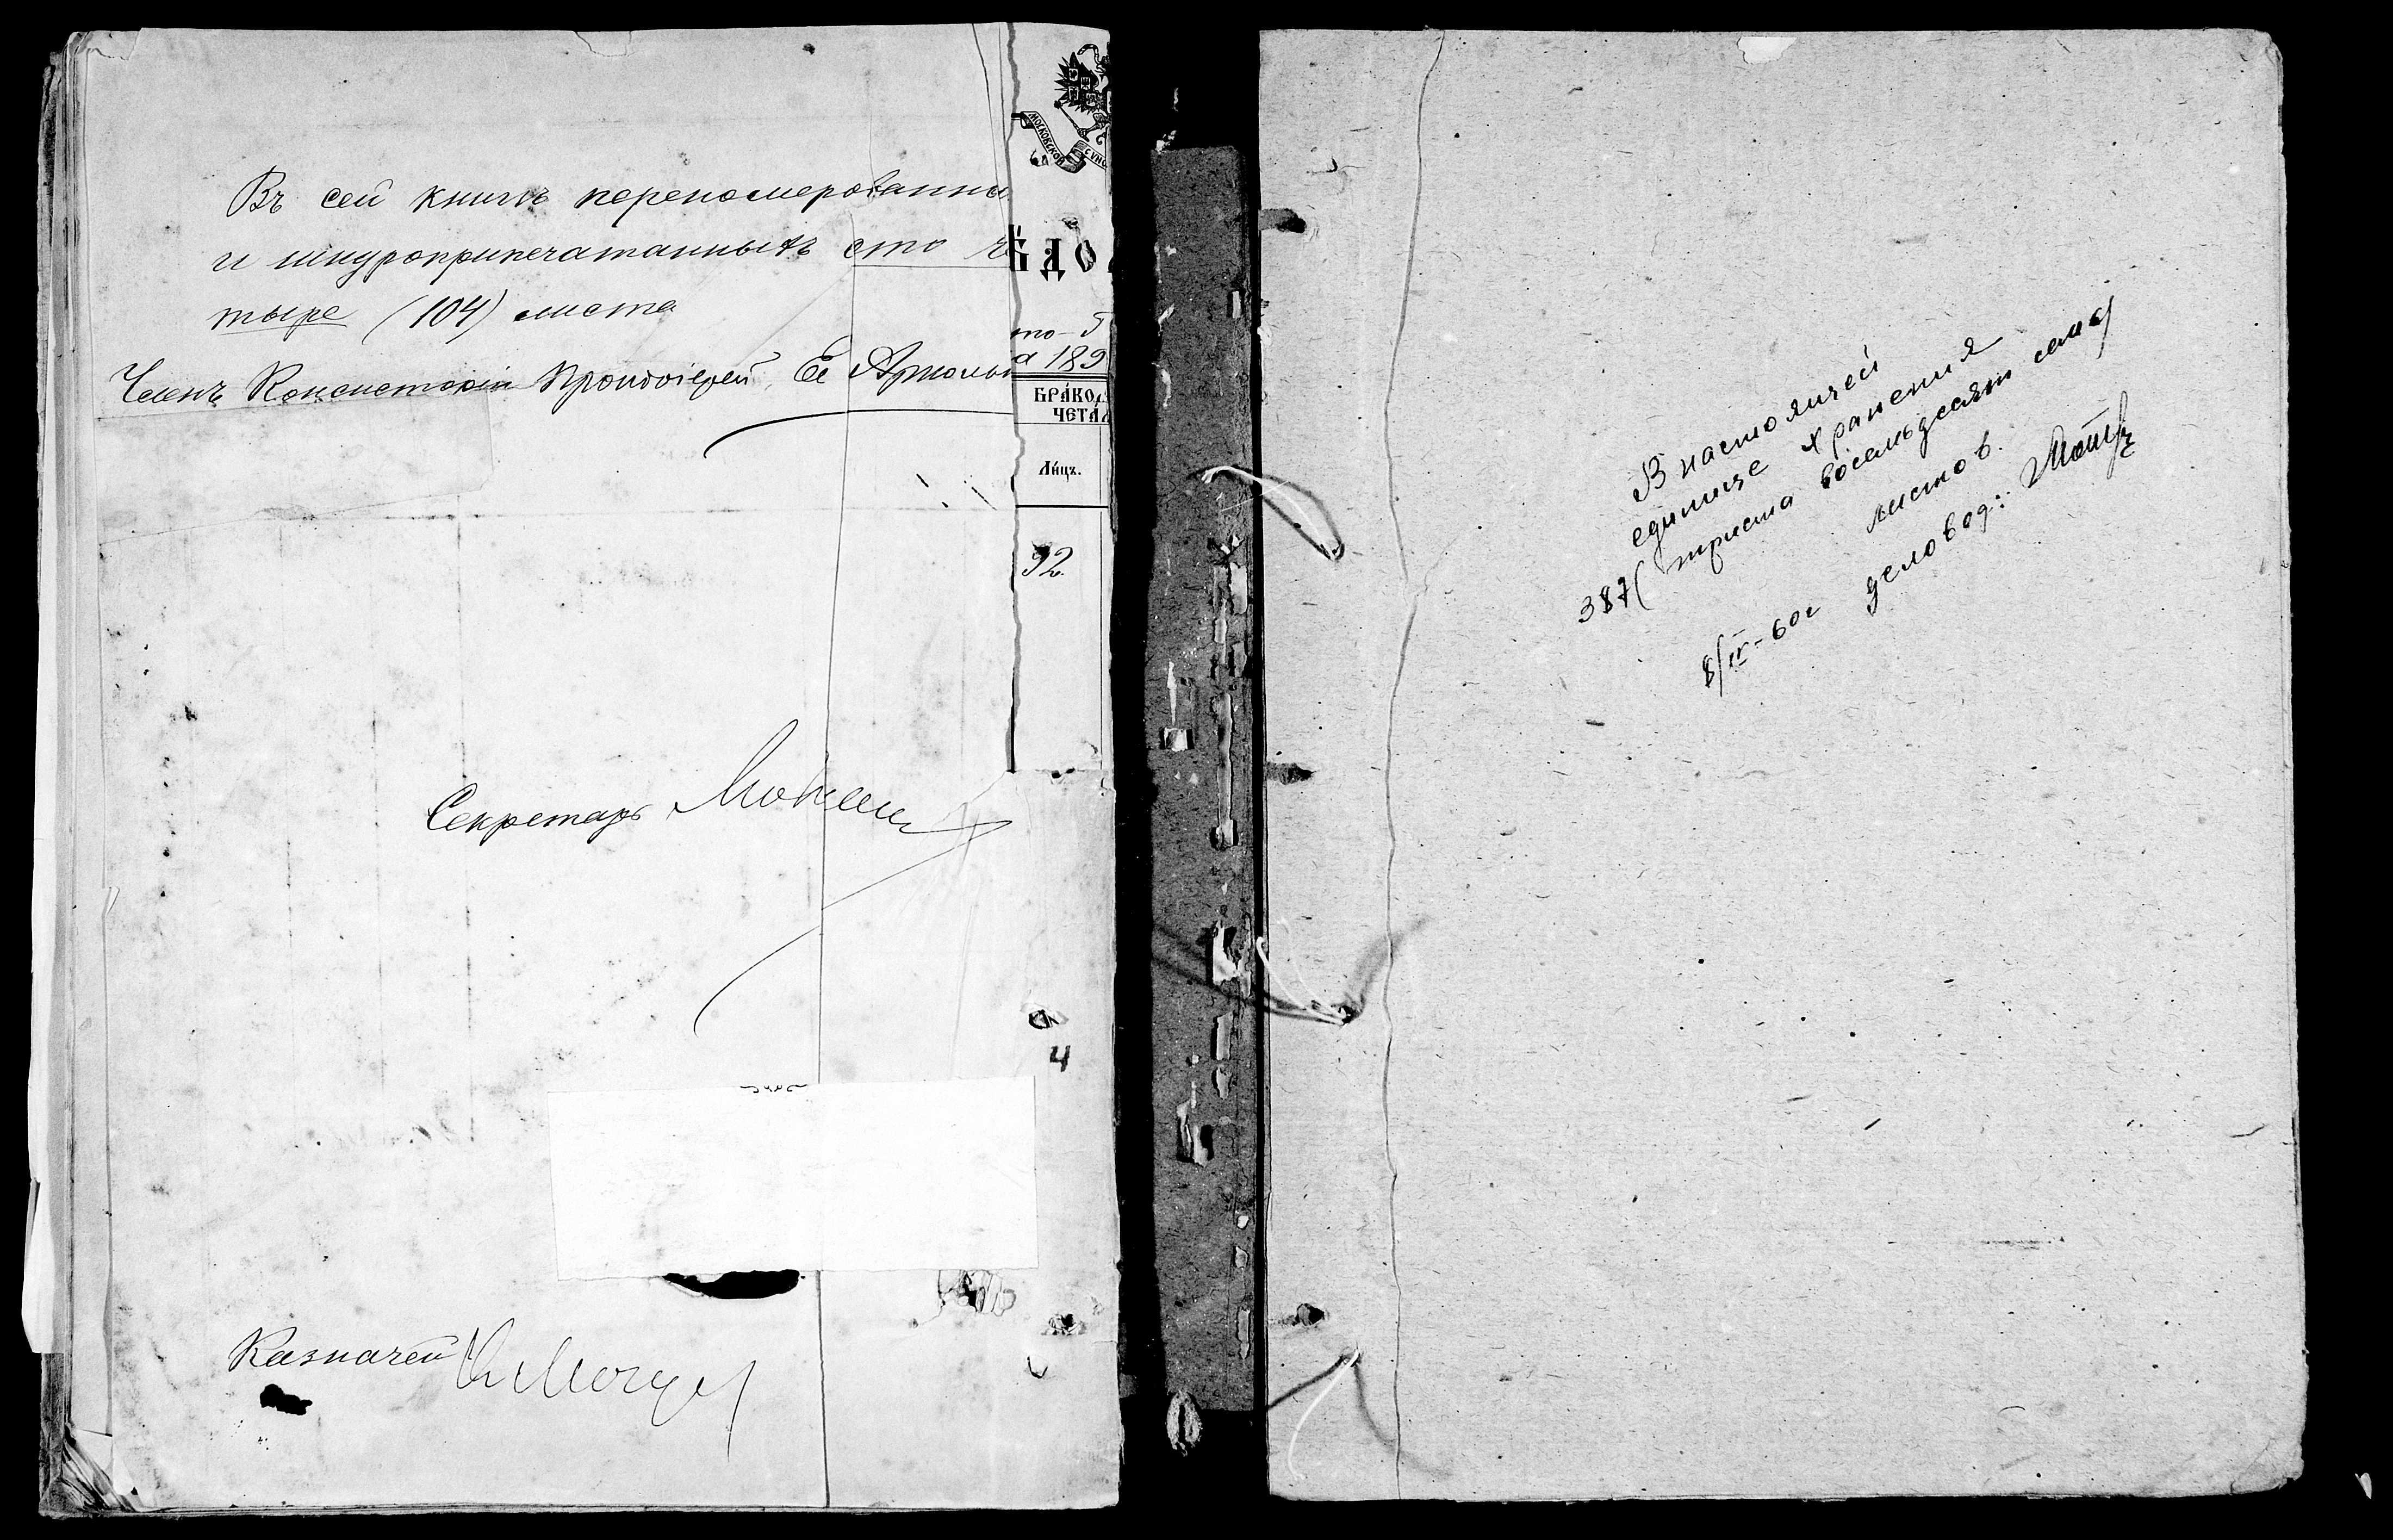 Въ сей книгѣ перенომерованны
и шнуроприпечатанныхъ сто че
тыре (104) листа
Членъ Консисторіи Протоіерей
Секретарь
Казначей
МОСКОВСКОЙ
СѴНО
ѢДО
то
а 189
БРА́КО
ЧЕТА́
Ли́цъ.
92.
4
В настоящей
единице хранения
387 (триста восемьдесят семь)
листов.
8/IV-60г деловод: